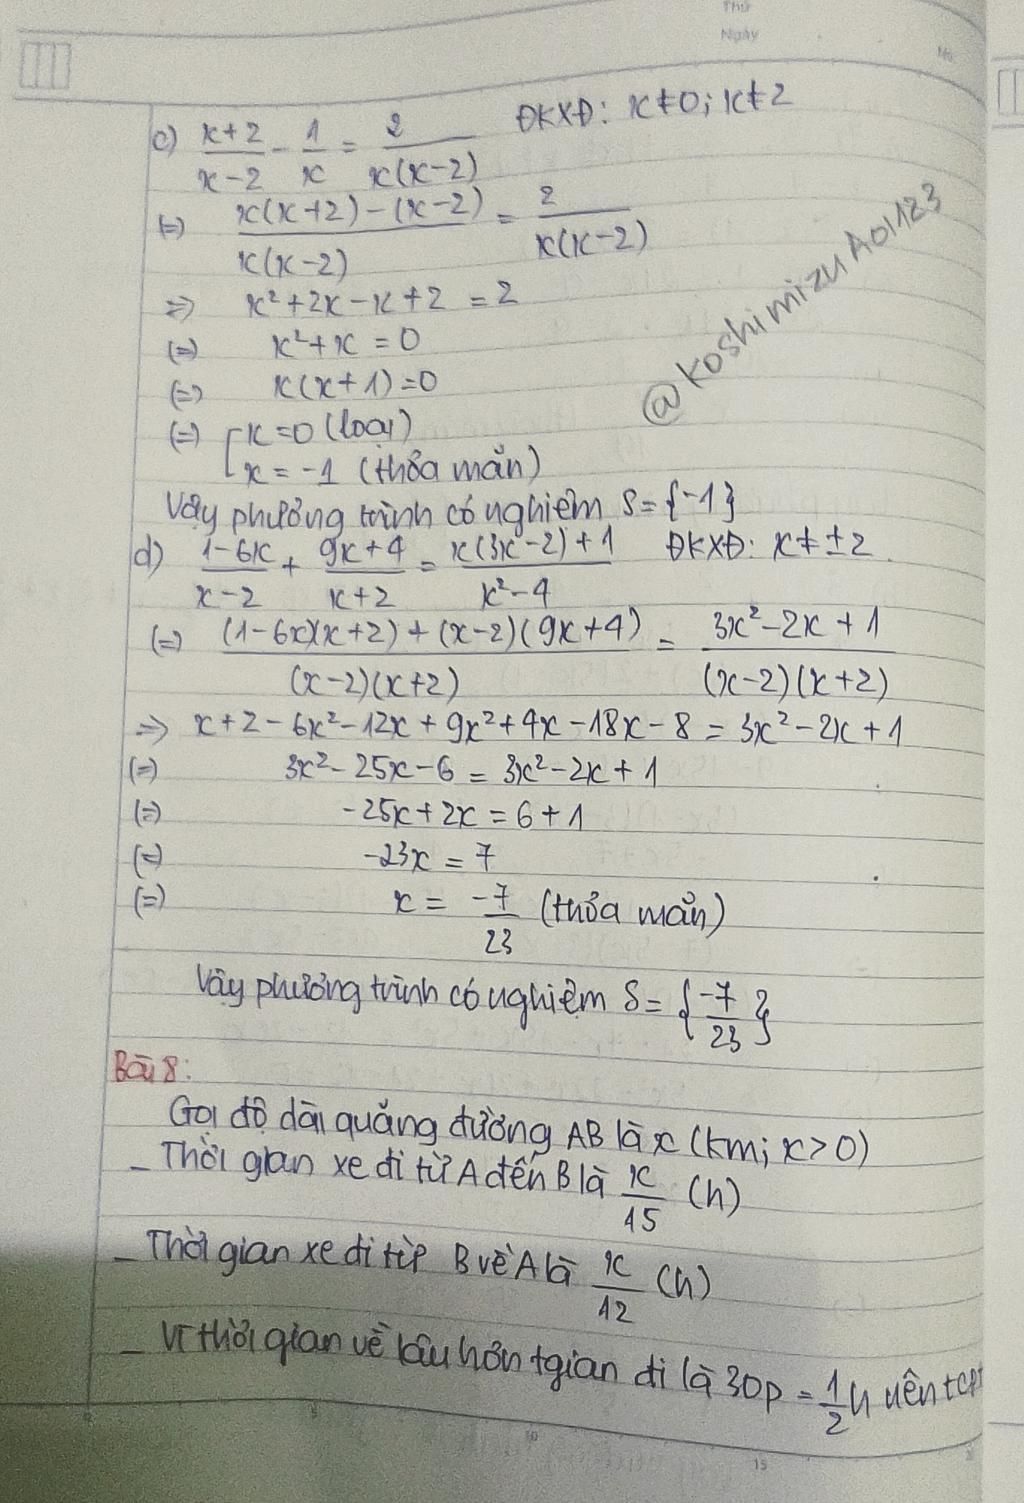 Thứ
Ngày
No.
c) x+2/x-2 - 1/x = 2/x(x-2) ĐKXĐ: x≠0; x≠2
(=) x(x+2)-(x-2)/x(x-2) = 2/x(x-2)
=> x²+2x-x+2 = 2
(=) x²+x = 0
(=) x(x+1)=0
(=) [x=0 (loại)
x = -1 (thỏa mãn)
@KoshimizuAoi123
Vậy phương trình có nghiệm S={-1}
d) 1-6x/x-2 + 9x+4/x+2 = x(3x-2)+1/x²-4 ĐKXĐ: x≠±2
(=) (1-6x)(x+2)+(x-2)(9x+4)/(x-2)(x+2) = 3x²-2x+1/(x-2)(x+2)
=> x+2-6x²-12x+9x²+4x-18x-8 = 3x²-2x+1
(=) 3x²-25x-6 = 3x²-2x+1
(=) -25x+2x = 6+1
(=) -23x = 7
(=) x = -7/23 (thỏa mãn)
Vậy phương trình có nghiệm S= {-7/23}
Bài 8:
Gọi độ dài quãng đường AB là x (km; x>0)
_ Thời gian xe đi từ A đến B là x/15 (h)
_ Thời gian xe đi từ B về A là x/12 (h)
_ Vì thời gian về lâu hơn tgian đi là 30p = 1/2 h nên
10
15